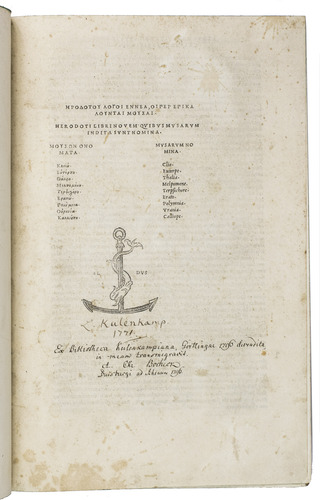 ΗΡΟΔΟΤΟΥ ΛΟΓΟΙ ΕΝΝΕΑ, ΟΙΠΕΡ ΕΠΙΚΑ
ΛΟΥΝΤΑΙ ΜΟΥΣΑΙ.
HERODOTI LIBRI NOVEM QVIBVS MVSARVM
INDITA SVNT NOMINA.
ΜΟΥΣΩΝ ΟΝΟ
ΜΑΤΑ.
Κλειώ.
Εὐτέρπη.
Θάλεια.
Μελπομένη.
Τερψιχόρη.
Ἐρατώ.
Πολύμνια.
Οὐρανία.
Καλλιόπη.
MVSARVM NO
MINA.
Clio.
Euterpe.
Thalia.
Melpomene.
Terpsichore.
Erato.
Polymnia.
Vrania.
Calliope.
AL DVS
L. Kulenkamp
1771.
Ex Bibliotheca Kulenkampiana, Gottingae
in meam transmigravit